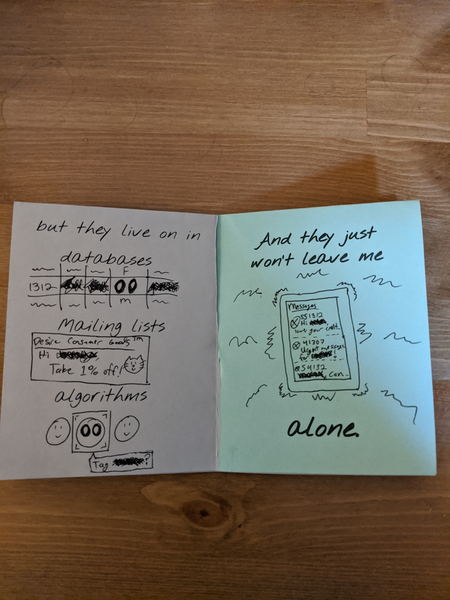 but they live on in
databases
F
1312
m
Mailing lists
Desire Consumer Goods™
Hi
Take 1% off!
algorithms
Tag ?
And they just
won't leave me
Messages
551312
Hi
your
41707
Urgent message
54132
, Can..
alone.